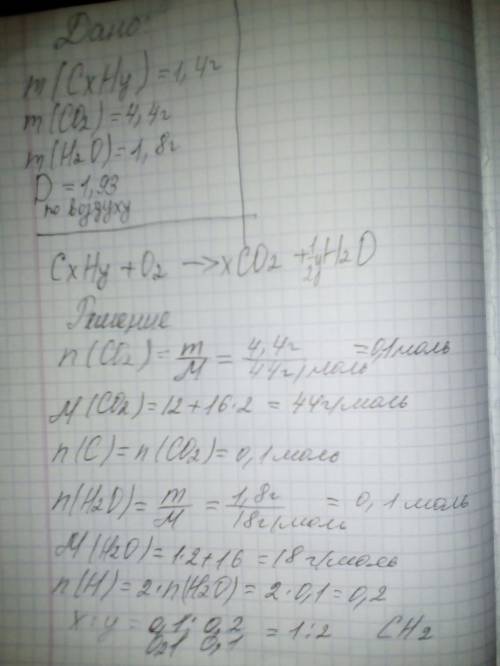 Дано:
m(CxHy)=1,4г
m(CO2)=4,4г
m(H2O)=1,8г
D по воздуху =1,93
CxHy+O2 → xCO2 + 1/2y H2O
Решение
n(CO2)= m/M = 4,4г/44г/моль =0,1моль
M(CO2)=12+16·2 = 44г/моль
n(C)=n(CO2)=0,1моль
n(H2O)= m/M = 1,8г/18г/моль = 0,1моль
M(H2O)=1·2+16=18г/моль
n(H)=2·n(H2O)=2·0,1=0,2
x:y = 0,1/0,1 : 0,2/0,1 = 1:2 CH2